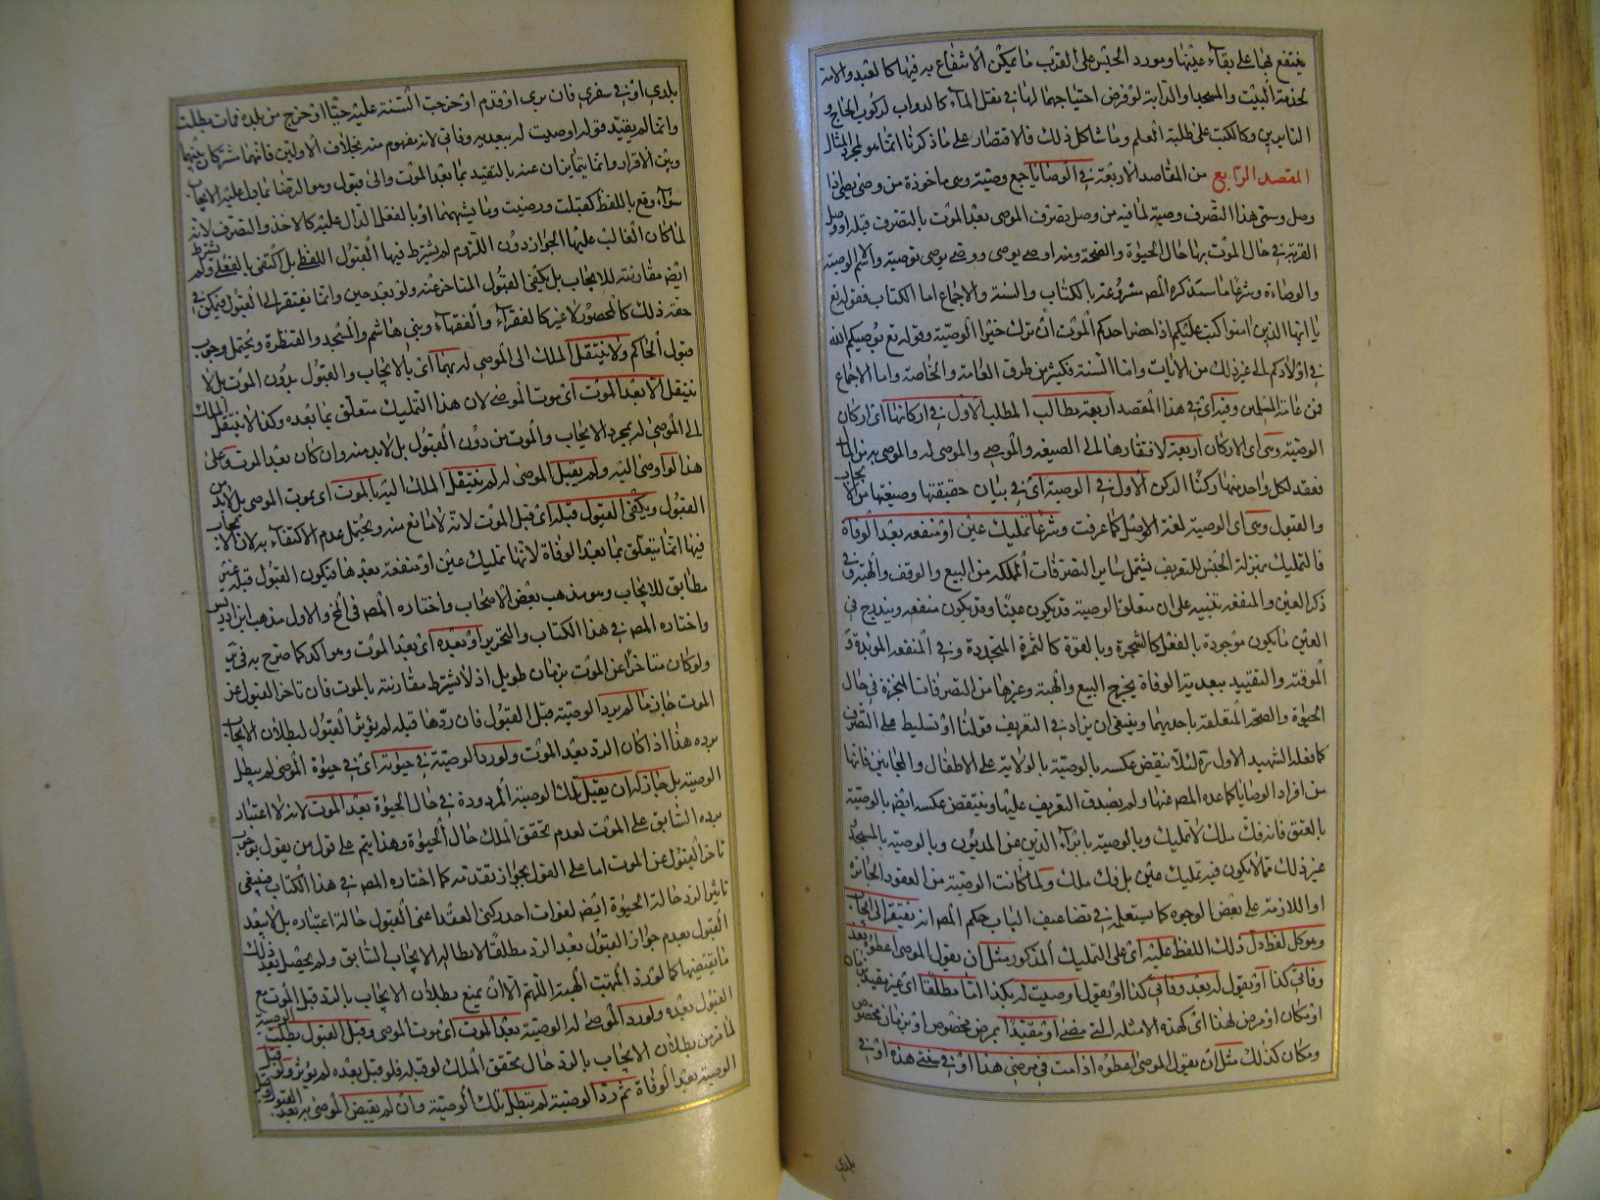 ينتفع بها على بقاء عينها ومورد الحبس على القرب ما يمكن الانتفاع به فيها كالعبد والامة
لخدمة البيت والمسجد والدابة لو فرض احتياجهما لها في نقل الماء كالدواب لركوب الحاج و
الزايرين وكالكتب على طلبة العلم وما شاكل ذلك فالاقتصار على ما ذكرنا انما هو لمجرد المثال
المقصد الرابع من المقاصد الاربعة في الوصايا جمع وصية وهي ماخوذة من وصى يصي اذا
وصل وسمي هذا التصرف وصية لما فيه من وصل تصرف الموصي بعد الموت بالتصرف قبله او وصل
القربة في حال الموت بها حال الحيوة والصحة ومنه اوصى يوصي ووصى يوصي توصية والاسم الوصية
والوصاة وشرعا ما ستذكره المصـ مشروعة بالكتاب والسنة والاجماع اما الكتاب فقوله تع
يا ايها الذين امنوا كتب عليكم اذا حضر احدكم الموت ان ترك خيرا الوصية وقوله تع يوصيكم الله
في اولادكم الى غير ذلك من الايات واما السنة فكثيرة من طرق العامة والخاصة واما الاجماع
فمن عامة المسلمين وفيه اي في هذا المقصد اربعة مطالب المطلب الاول في اركانها اي اركان
الوصية وهي اي الاركان اربعة لافتقارها الى الصيغة والموصي والموصى له والموصى به
فعقد لكل واحد منها ركنا الركن الاول في الوصية اي في بيان حقيقتها وصيغتها من الايجاب
والقبول وهي اي الوصية لغة الوصل كما عرفت وشرعا تمليك عين او منفعة بعد الوفاة
فالتمليك بمنزلة الجنس للتعريف تشمل ساير التصرفات المملكة من البيع والوقف والهبة وفي
ذكر العين والمنفعة تنبيه على ان متعلق الوصية قد يكون عينا وقد يكون منفعة ويندرج في
العين ما يكون موجودة بالفعل كالشجرة وبالقوة كالثمرة المتجددة وفي المنفعة الموبدة و
الموقتة والتقييد ببعدية الوفاة يخرج البيع والهبة وغيرها من التصرفات المنجزة في حال
الحيوة والصحة المتعلقة باحديهما وينبغي ان يزاد في التعريف قولنا او تسليط على التصرف
كما فعله الشهيد الاول ره لئلا ينتقض عكسه بالوصية بالولاية على الاطفال والمجانين فانها
من افراد الوصايا كما عده المصـ منها ولم يصدق التعريف عليها وينتقض عكسه ايضـ بالوصية
بالعتق فانه فك ملك لا تمليك وبالوصية بابراء الدين من المديون وبالوصية بالمسجد
غير ذلك مما لا يكون فيه تمليك عين بل فك ملك ولما كانت الوصية من العقود الجائزة
او اللازمة على بعض الوجوه كما ستعلمه في تضاعيف الباب حكم المصـ انه يفتقر الى ايجاب
وهو كل لفظ دل ذلك اللفظ عليه اي على التمليك المذكور مثل ان يقول الموصي اعطوه بعد
وفاتي كذا او يقول له بعد وفاتي كذا او يقول اوصيت له بكذا اما مطلقا اي غير مقيد بزمان
او مكان او مرض لهذا اي كهذه الامثلة التي مضت او مقيدا بمرض مخصوص او بزمان مخصوص
ومكان كذلك مثل ان يقول الموصي اعطوه اذا مت في مرضي هذا او في سنتي هذه او في
بلدي
بلدي او في سفري فان برئ او قدم او خرجت السنة عليه حيا او خرج من بلده فمات بطلت
وانما لم يقيد قوله اوصيت له ببعد وفاتي لانه مفهوم منه بخلاف الاولين فانهما مشتركان بينها
وبين الاقرار وانما يتمايزان عنه بالتقييد بما بعد الموت والى قبول وهو الرضا بما دل عليه الايجاب
سواء وقع باللفظ كقبلت ورضيت وما يشبههما او بالفعل الدال عليه كالاخذ والتصرف لانه
لما كان الغالب عليها الجواز دون اللزوم لم يشترط فيها القبول اللفظي بل اكتفى بالفعلي ولم يشترط
ايضـ مقارنته للايجاب بل يكفي القبول المتاخر عنه ولو بعد حين وانما يفتقر الى القبول فيمكن في
حقه ذلك كالمحصور لا غير كالفقراء والفقهاء وبني هاشم والمسجد والقنطرة ويحتمل وجوب
قبول الحاكم ولا ينتقل الملك الى الموصى له بهما اي بالايجاب والقبول بدون الموت بل لا
ينتقل الا بعد الموت اي موت الموصي لان هذا التمليك متعلق بما بعده وكذا لا ينتقل الملك
الى الموصى له بمجرد الايجاب والموت من دون القبول بل لا بد منه وان كان بعد الموت وعلى
هذا لو اوصى اليه ولم يقبل الموصى له لم ينتقل الملك اليه بالموت اي بموت الموصي بل لا بد من
القبول ويكفي القبول قبله اي قبل الموت لانه لا مانع منه ويحتمل عدم الاكتفاء به لان الايجاب
فيها انما يتعلق بما بعد الوفاة لانها تمليك عين او منفعة بعدها فيكون القبول قبله غير
مطابق للايجاب وهو مذهب بعض الاصحاب واختاره المصـ في المخ والاول مذهب ابن ادريس
واختاره المصـ في هذا الكتاب والتحرير او بعده اي بعد الموت وهو اكد كما صرح به في
ولو كان متاخرا عن الموت بزمان طويل اذ لا يشترط مقارنته بالموت فان تاخر القبول عن
الموت جاز ما لم يرد الوصية قبل القبول فان ردها قبله لم يؤثر القبول لبطلان الايجاب
برده هذا اذا كان الرد بعد الموت ولو رد الوصية في حيوته اي في حيوة الموصي لم يبطل
الوصية بل جاز له ان يقبل تلك الوصية المردودة في حال الحيوة بعد الموت لانه لا اعتداد
برده السابق على الموت لعدم تحقق الملك حال الحيوة وهذا يتم على قول من يقول بوجوب
تاخر القبول عن الموت اما على القول بجواز تقدمه كما اختاره المصـ في هذا الكتاب فينبغي
تاثير الرد حالة الحيوة ايضـ لفوات احد ركني العقد اعني القبول حالة اعتباره بل لا بعد
القبول بعدم جواز القبول بعد الرد مطلقا لابطاله الايجاب السابق ولم يحصل بعد ذلك
ما يقتضيها كما لو رد المتهب الهبة اللهم الا ان يمنع بطلان الايجاب بالرد قبل الموت مع
القبول بعده ولو رد الموصى له الوصية بعد الموت اي موت الموصي وقبل القبول بطلت الوصية
لما مر من بطلان الايجاب بالرد حال تحقق الملك لو قبله فلو قبل بعده لم يؤثر ولو قبل
الوصية بعد الوفاة ثم رد الوصية لم تبطل تلك الوصية وان لم يقبض الموصى به بعد القبول